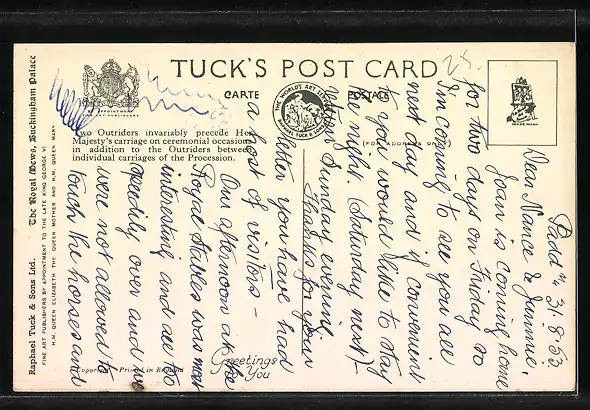 TUCK'S POST CARD
CARTE
POSTALE
THE WORLD'S ART SERVICE
RAPHAEL TUCK & SONS LTD
(FOR ADDRESS ONLY)
BY APPOINTMENT
Two Outriders invariably precede Her
Majesty's carriage on ceremonial occasions
in addition to the Outriders between
individual carriages of the Procession.
Raphael Tuck & Sons Ltd. The Royal Mews, Buckingham Palace
FINE ART PUBLISHERS BY APPOINTMENT TO THE LATE KING GEORGE VI
H.M. QUEEN ELIZABETH THE QUEEN MOTHER AND H.M. QUEEN MARY
Copyright Printed in England
Greetings
You
25.
31.8.53
Dear Nance & Jimmie,
Joan is coming home
for two days on Friday so
I'm coming to see you all
next day and if convenient
to you would like to stay
the night. (Saturday next)-
Sunday evening
Thanks for your
letter you have had
a host of visitors -
One afternoon at the
Royal Stables was most
interesting and all to
speedily over and we
were not allowed to
touch the horses and